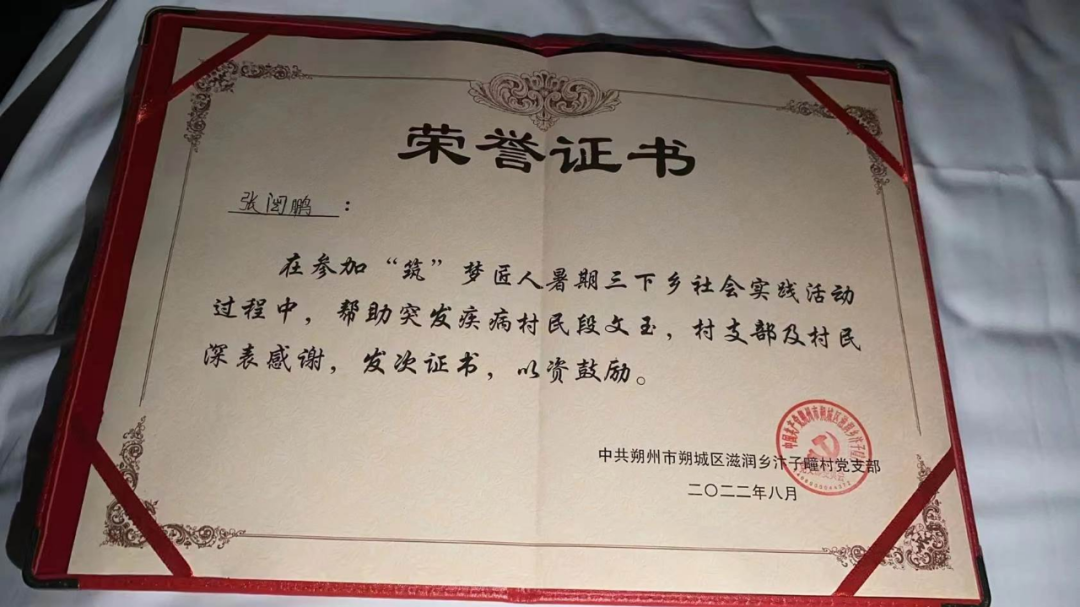 荣誉证书
张闼鹏：
在参加“筑”梦匠人暑期三下乡社会实践活动
过程中，帮助突发疾病村民段文玉，村支部及村民
深表感谢，发次证书，以资鼓励。
中共朔州市朔城区滋润乡汴子疃村党支部
二〇二二年八月